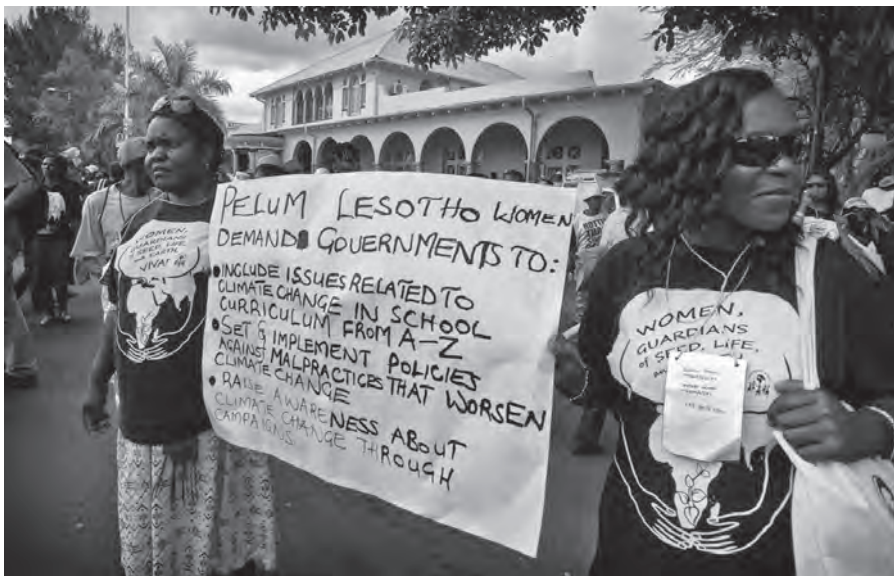 PELUM LESOTHO WOMEN
DEMAND GOVERNMENTS TO:
• INCLUDE ISSUES RELATED TO
CLIMATE CHANGE IN SCHOOL
CURRICULUM FROM A-Z
• SET & IMPLEMENT POLICIES
AGAINST MALPRACTICES THAT WORSEN
CLIMATE CHANGE
• RAISE AWARENESS ABOUT
CLIMATE CHANGE THROUGH
CAMPAIGNS
WOMEN,
GUARDIANS
of SEED, LIFE,
and EARTH
VIVA!
WOMEN,
GUARDIANS
of SEED, LIFE,